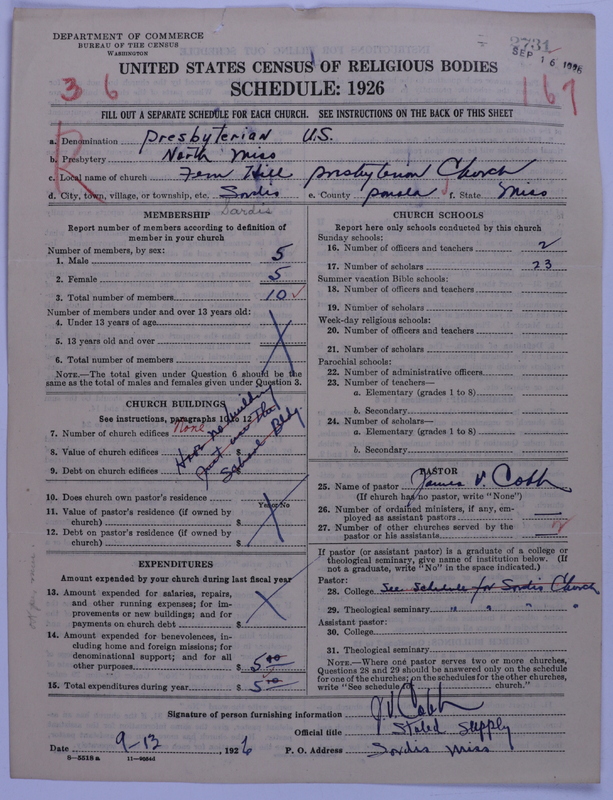 DEPARTMENT OF COMMERCE
BUREAU OF THE CENSUS
WASHINGTON
2731
SEP 16 1926
UNITED STATES CENSUS OF RELIGIOUS BODIES
SCHEDULE: 1926
36
167
FILL OUT A SEPARATE SCHEDULE FOR EACH CHURCH. SEE INSTRUCTIONS ON THE BACK OF THIS SHEET
R
a. Denomination Presbyterian U.S.
b. Presbytery North Miss
c. Local name of church Fern Hill Presbyterian Church
d. City, town, village, or township, etc. Sardis e. County Panola f. State Miss
Sardis
MEMBERSHIP
Report number of members according to definition of
member in your church
Number of members, by sex:
1. Male 5
2. Female 5
3. Total number of members 10 ✓
Number of members under and over 13 years old:
4. Under 13 years of age
5. 13 years old and over
6. Total number of members
NOTE.—The total given under Question 6 should be the
same as the total of males and females given under Question 3.
CHURCH BUILDINGS
See instructions, paragraphs 10 to 12
7. Number of church edifices None
8. Value of church edifices $
9. Debt on church edifices $
Have no building
just use the
School Bldg
10. Does church own pastor's residence
Yes or No
11. Value of pastor's residence (if owned by
church) $
12. Debt on pastor's residence (if owned by
church) $
EXPENDITURES
Amount expended by your church during last fiscal year
13. Amount expended for salaries, repairs,
and other running expenses; for im-
provements or new buildings; and for
payments on church debt $
14. Amount expended for benevolences, in-
cluding home and foreign missions; for
denominational support; and for all
other purposes $ 5.00
15. Total expenditures during year $ 5.00
CHURCH SCHOOLS
Report here only schools conducted by this church
Sunday schools:
16. Number of officers and teachers 2
17. Number of scholars 23
Summer vacation Bible schools:
18. Number of officers and teachers
19. Number of scholars
Week-day religious schools:
20. Number of officers and teachers
21. Number of scholars
Parochial schools:
22. Number of administrative officers
23. Number of teachers—
a. Elementary (grades 1 to 8)
b. Secondary
24. Number of scholars—
a. Elementary (grades 1 to 8)
b. Secondary
PASTOR
25. Name of pastor James V Cobb
(If church has no pastor, write "None")
26. Number of ordained ministers, if any, em-
ployed as assistant pastors —
27. Number of other churches served by the
pastor or his assistants
If pastor (or assistant pastor) is a graduate of a college or
theological seminary, give name of institution below. (If
not a graduate, write "No" in the space indicated.)
Pastor:
28. College See Schedule for Sardis Church
29. Theological seminary " " " "
Assistant pastor:
30. College
31. Theological seminary
NOTE.—Where one pastor serves two or more churches,
Questions 28 and 29 should be answered only on the schedule
for one of the churches; on the schedules for the other churches,
write "See schedule church."
Signature of person furnishing information J.V. Cobb
Official title Stated Supply
Date 9-13, 1926 P. O. Address Sardis Miss
8—5518 a